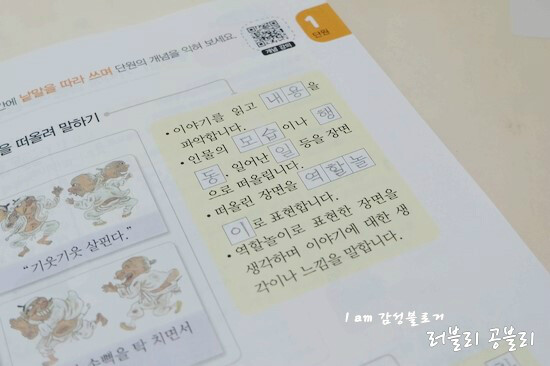 1
단원
개념 강의
낱말을 따라 쓰며 단원의 개념을 익혀 보세요.
을 떠올려 말하기
• 이야기를 읽고 내용을
파악합니다.
• 인물의 모습이나 행
동, 일어난 일 등을 장면
으로 떠올립니다.
• 떠올린 장면을 역할놀
이로 표현합니다.
• 역할놀이로 표현한 장면을
생각하며 이야기에 대한 생
각이나 느낌을 말합니다.
"기웃기웃 살핀다."
손뼉을 탁 치면서
I am 감성블로거
러블리 공블리